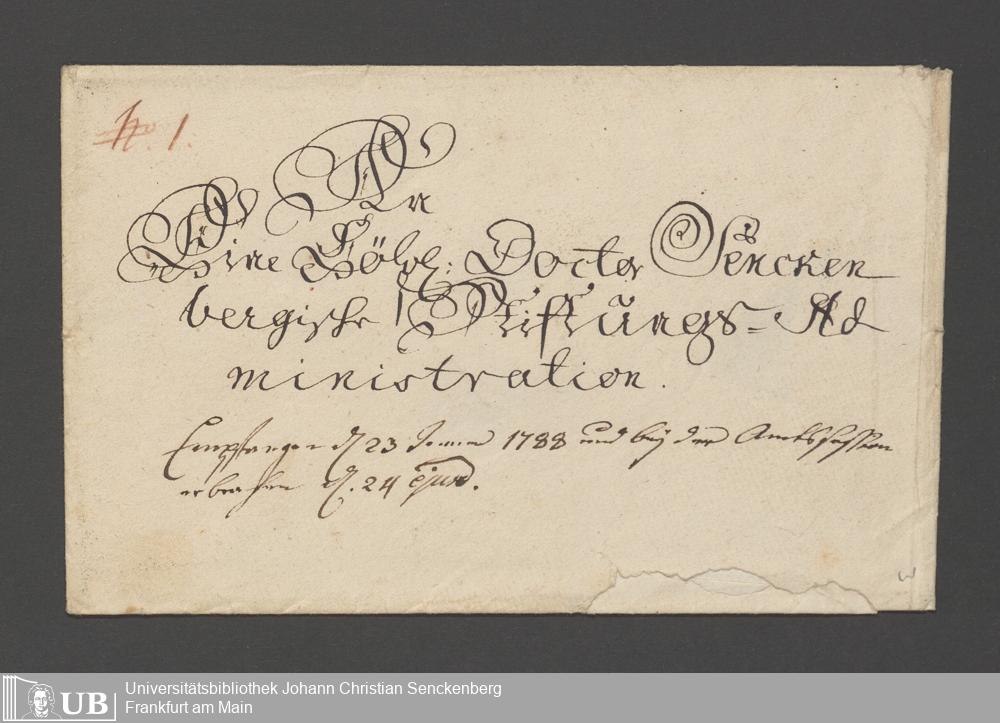 N. 1.
An
Eine Löbl: Doctor Sencken
bergische Stiftungs= Ad
ministration.
Empfangen d 23 1788 und bey der Amtssession
erbrochen d. 24 ejusd.
UB
Universitätsbibliothek Johann Christian Senckenberg
Frankfurt am Main